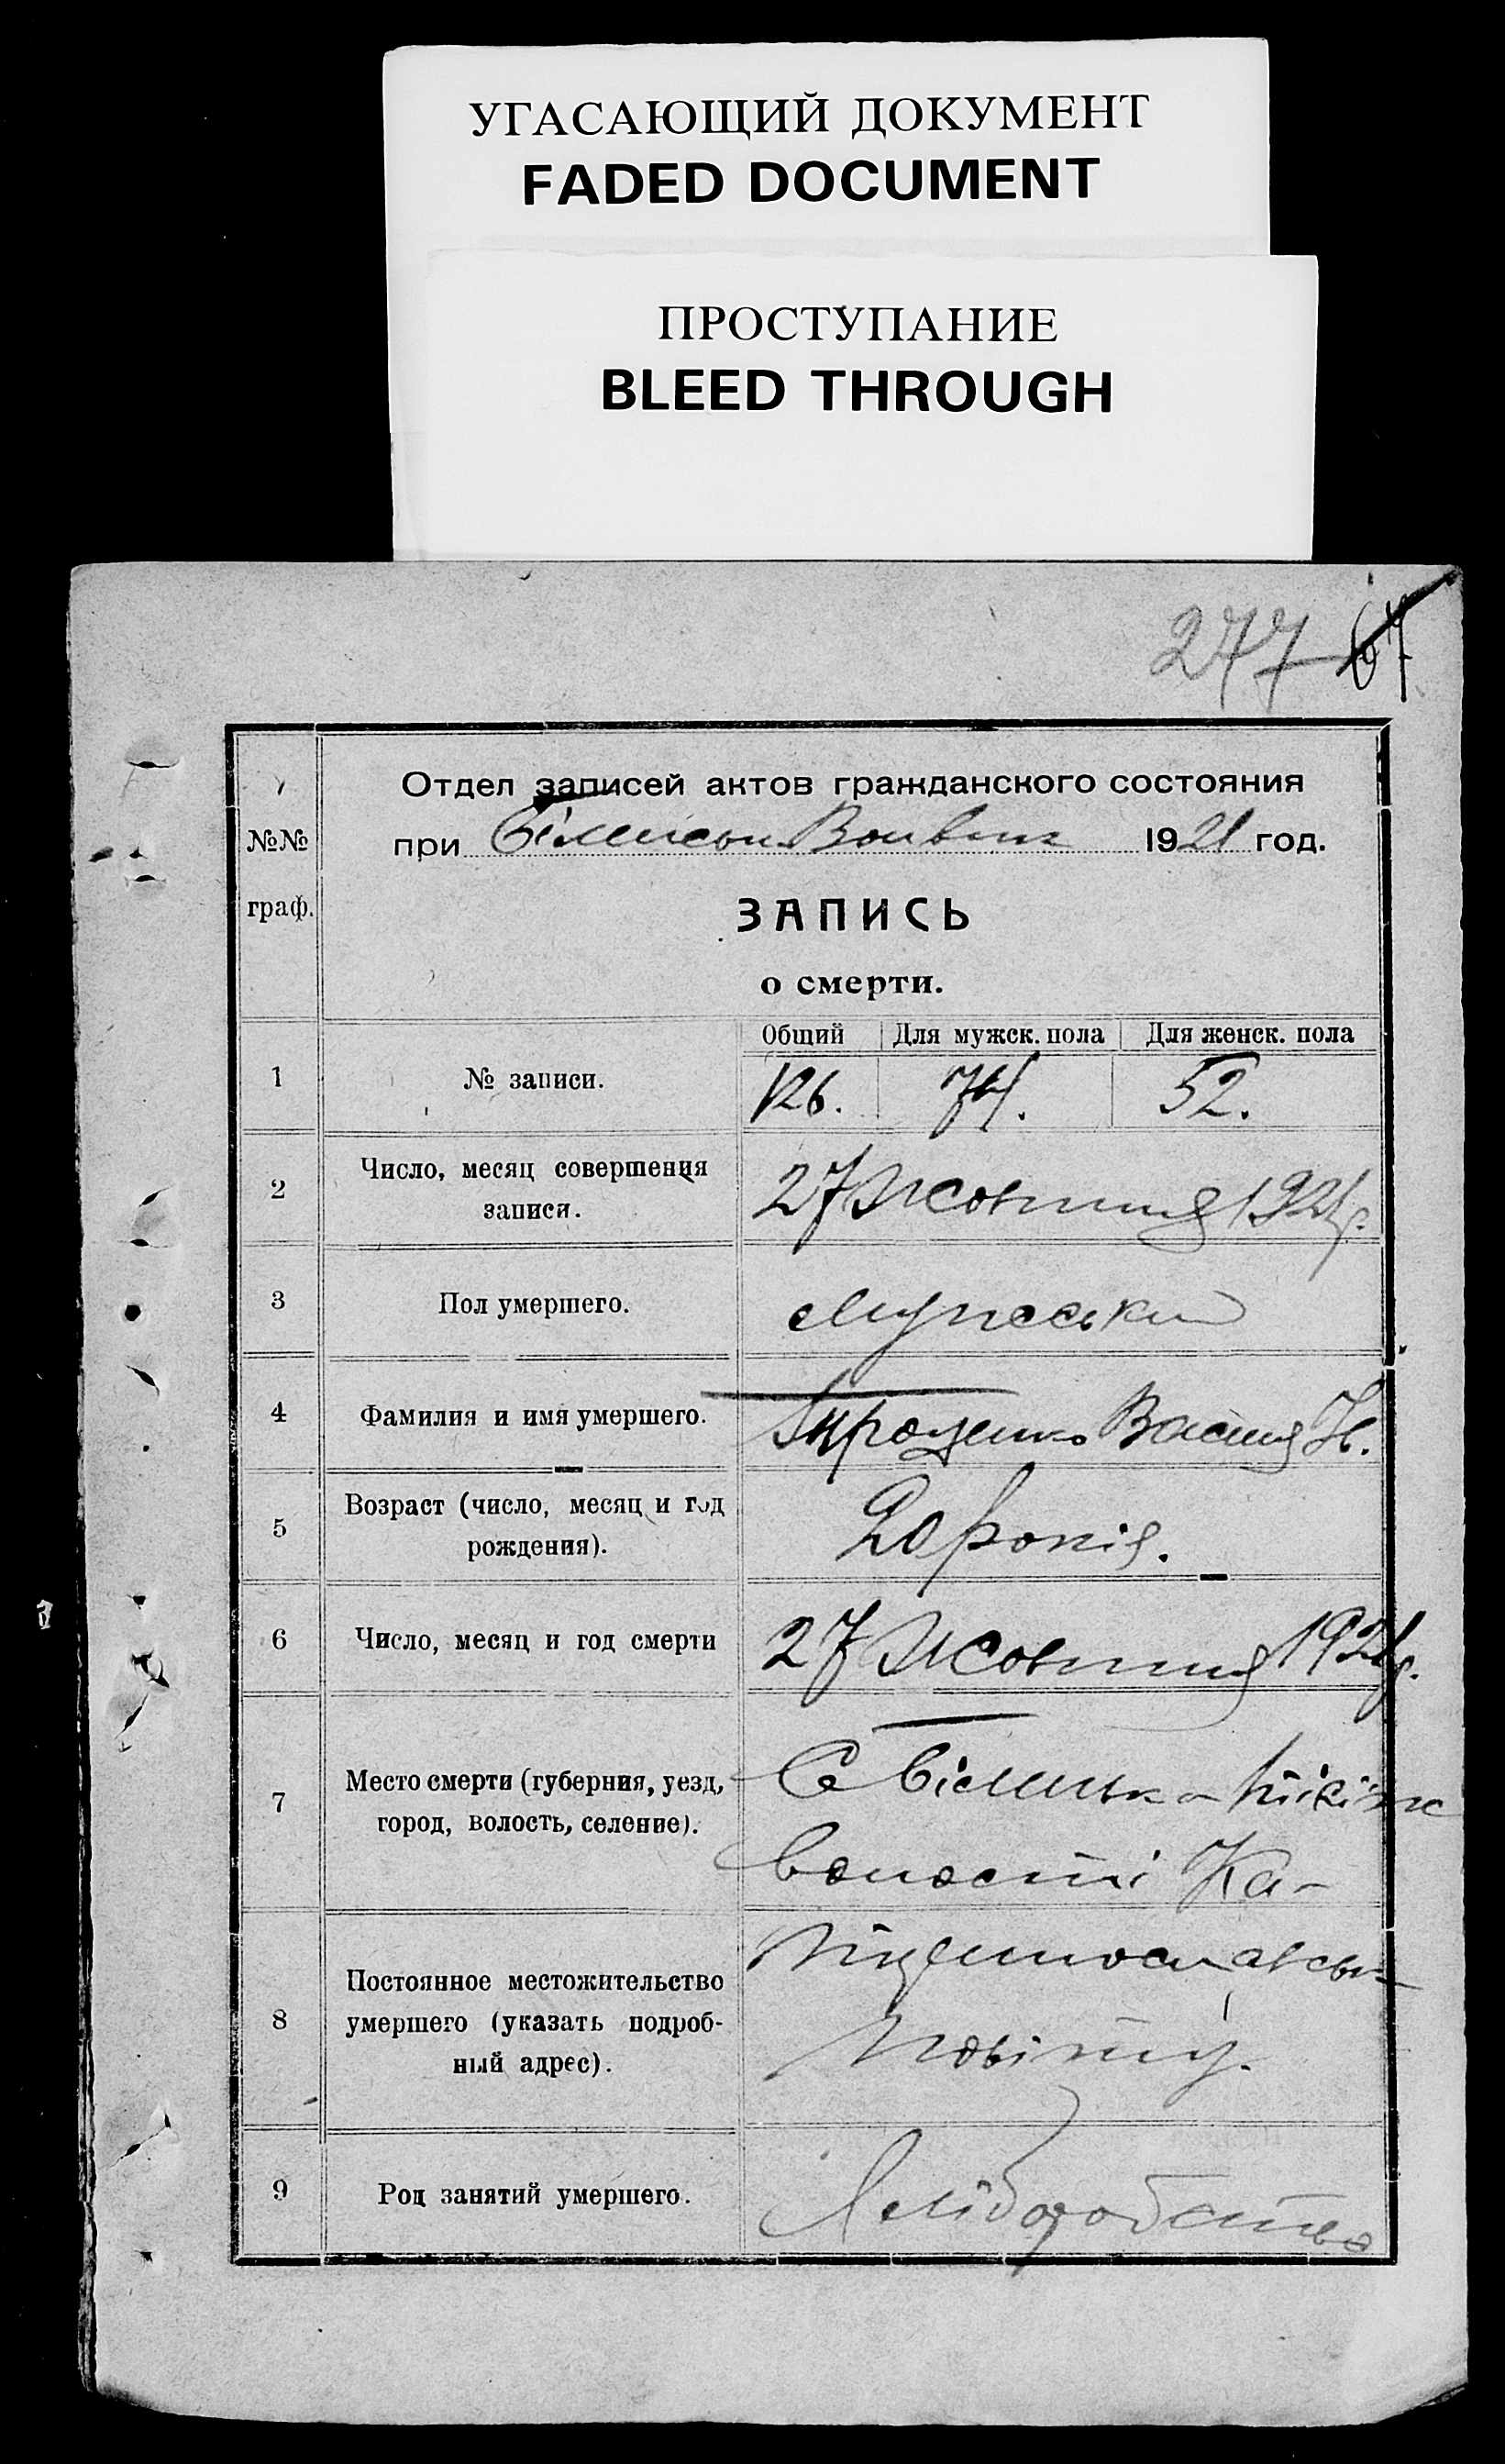 УГАСАЮЩИЙ ДОКУМЕНТ
FADED DOCUMENT
ПРОСТУПАНИЕ
BLEED THROUGH
277 67
№№ граф.
Отдел записей актов гражданского состояния
при 1921 год.
ЗАПИСЬ
о смерти.
Общий Для мужск. пола Для женск. пола
1 № записи. 126. 74. 52.
2 Число, месяц совершения
записи. 27 Жовтня 1921р.
3 Пол умершего. Мужеський
4 Фамилия и имя умершего.
5 Возраст (число, месяц и год
рождения). 20 років.
6 Число, месяц и год смерти 27 Жовтня 1921р.
7 Место смерти (губерния, уезд,
город, волость, селение). С
волості Ка-
8 Постоянное местожительство
умершего (указать подроб-
ный адрес). повіту.
9 Род занятий умершего. Хліборобство